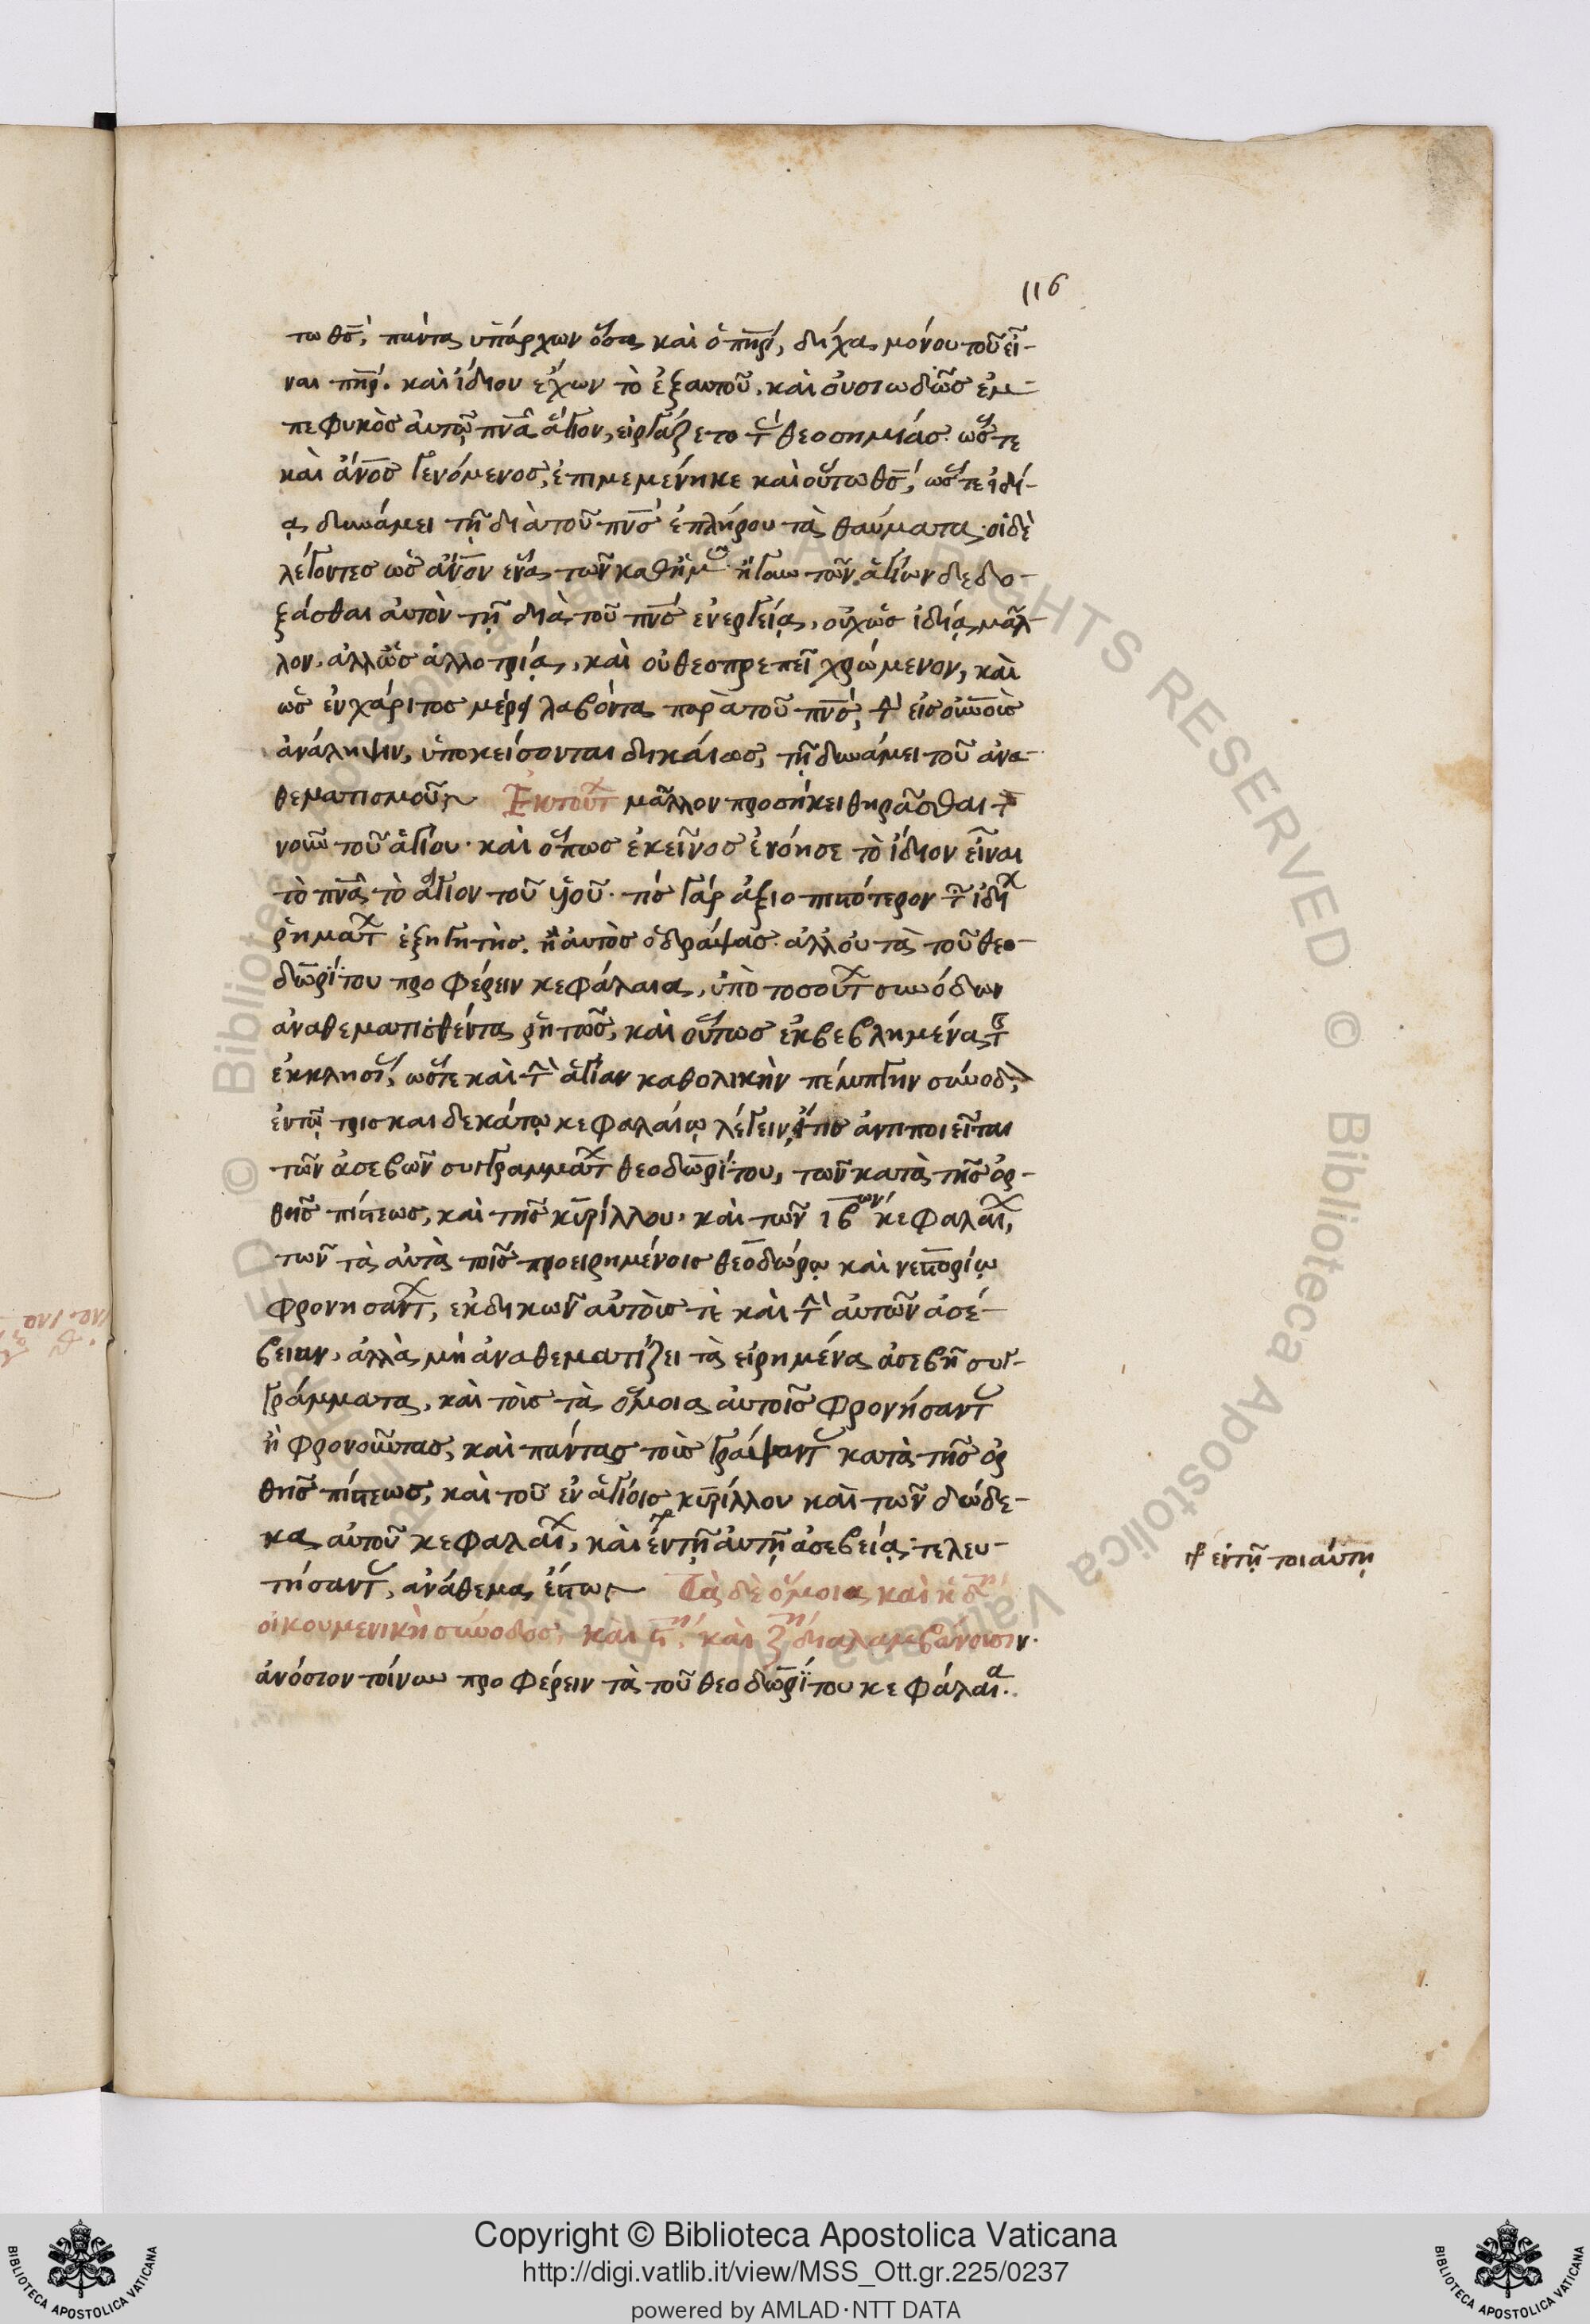 116
τω θς̅, πάντα ὑπάρχων ὅσα καὶ ὁ πηρ̅, δίχα μόνου τοῦ εἶ-
ναι πηρ̅. καὶ ἴδιον ἔχων τὸ ἐξ αυτοῦ. καὶ οὐσιωδῶς ἐμ-
πεφυκὸς αὐτῷ πνα̅ ἅγιον, εἰργάζετο τ̀ θεοσημίας. ὥστε
καὶ ἄνος̅ γενόμενος, ἐπιμεμένηκε καὶ οὕτω θς̅, ὥστε ἰδί-
ᾳ δυνάμει τῇ διὰ τοῦ πνς̅ ἐπλήρου τὰ θαύματα. οἱ δὲ
λέγοντες ὡς ἄνον̅ ἕνα τῶν καθ' ἡμ ἤγουν τῶν ἁγίων δεδο-
ξάσθαι αὐτὸν τῇ διὰ τοῦ πνς̅ ἐνεργείᾳ, οὐχ ὡς ἰδίᾳ μᾶλ-
λον, ἀλλ' ὡς ἀλλοτρίᾳ, καὶ οὐ θεοπρεπεῖ χρώμενον, καὶ
ὡς ἐν χάριτος μέρει λαβόντα παρὰ τοῦ πνς̅, τ̀ εἰς οὐνοὺς
ἀνάληψιν, ὑποκείσονται δικαίως, τῇ δυνάμει τοῦ ἀνα-
θεματισμοῦ. Ἐκ τούτ μᾶλλον προσήκει θηρᾶσθαι τ
νοῦν τοῦ ἁγίου. καὶ ὅπως ἐκεῖνος ἐνόησε τὸ ἴδιον εἶναι
τὸ πνα̅ τὸ ἅγιον τοῦ υἱοῦ. τίς γάρ ἀξιοπιστότερον τ ἰδι
ῥημάτ ἐξηγητὴς. ἢ αὐτὸς ὁ δράψας. ἀλλ' οὐ τὰ τοῦ θεο-
δωρίτου προφέρειν κεφάλαια, ὑπὸ τοσούτ συνόδων
ἀναθεματισθέντα ῥητῶς, καὶ οὕτως ἐκβεβλημένα τ
ἐκκλησί, ὥστε καὶ τ̀ ἁγίαν καθολικὴν πέμπτην σύνοδ,
ἐν τῷ τρισκαιδεκάτῳ κεφαλαίῳ λέγειν, εἴ τις ἀντιποιεῖται
τῶν ἀσεβῶν συγγραμμάτ θεοδωρίτου, τῶν κατὰ τῆς ὀρ-
θῆς πίστεως, καὶ τῆς κυρίλλου. καὶ τῶν ιβ ων κεφαλαί,
τῶν τὰ αὐτὰ τοῖς προειρημένοις θεοδώρῳ καὶ νεστορίῳ
φρονησάντ, ἐκδικῶν αὐτοὺς τὲ καὶ τ̀ αὐτῶν ἀσέ-
βειαν. ἀλλὰ μὴ ἀναθεματίζει τὰ εἰρημένα ἀσεβῆ συγ-
γράμματα, καὶ τοὺς τὰ ὅμοια αὐτοῖς φρονήσαντ
ἢ φρονοῦντας, καὶ πάντας τοὺς γράψαντ κατὰ τῆς ὀρ
θῆς πίστεως, καὶ τοῦ ἐν ἁγίοις κυρίλλου καὶ τῶν δώδε-
κα αὐτοῦ κεφαλαί, καὶ ἐν τῇ αὐτῇ ἀσεβείᾳ τελευ-
τήσαντ, ἀνάθεμα ἔστω
ἐν τῇ τοιαύτῃ
Τὰ δὲ ὅμοια καὶ ἡ δ
οἰκουμενικὴ σύνοδος, καὶ ϛ η, καὶ ζ η διαλαμβάνουσιν.
ἀνόσιον τοίνυν προφέρειν τὰ τοῦ θεοδωρίτου κεφάλαια.
Copyright © Biblioteca Apostolica Vaticana
http://digi.vatlib.it/view/MSS_Ott.gr.225/0237
powered by AMLAD·NTT DATA